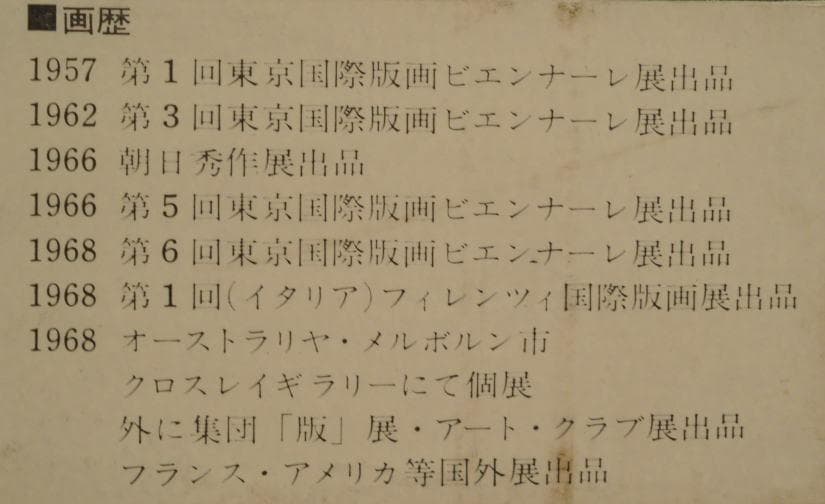 ■画歴
1957 第1回東京国際版画ビエンナーレ展出品
1962 第3回東京国際版画ビエンナーレ展出品
1966 朝日秀作展出品
1966 第5回東京国際版画ビエンナーレ展出品
1968 第6回東京国際版画ビエンナーレ展出品
1968 第1回(イタリア)フィレンツィ国際版画展出品
1968 オーストラリヤ・メルボルン市
クロスレイギラリーにて個展
外に集団「版」展・アート・クラブ展出品
フランス・アメリカ等国外展出品